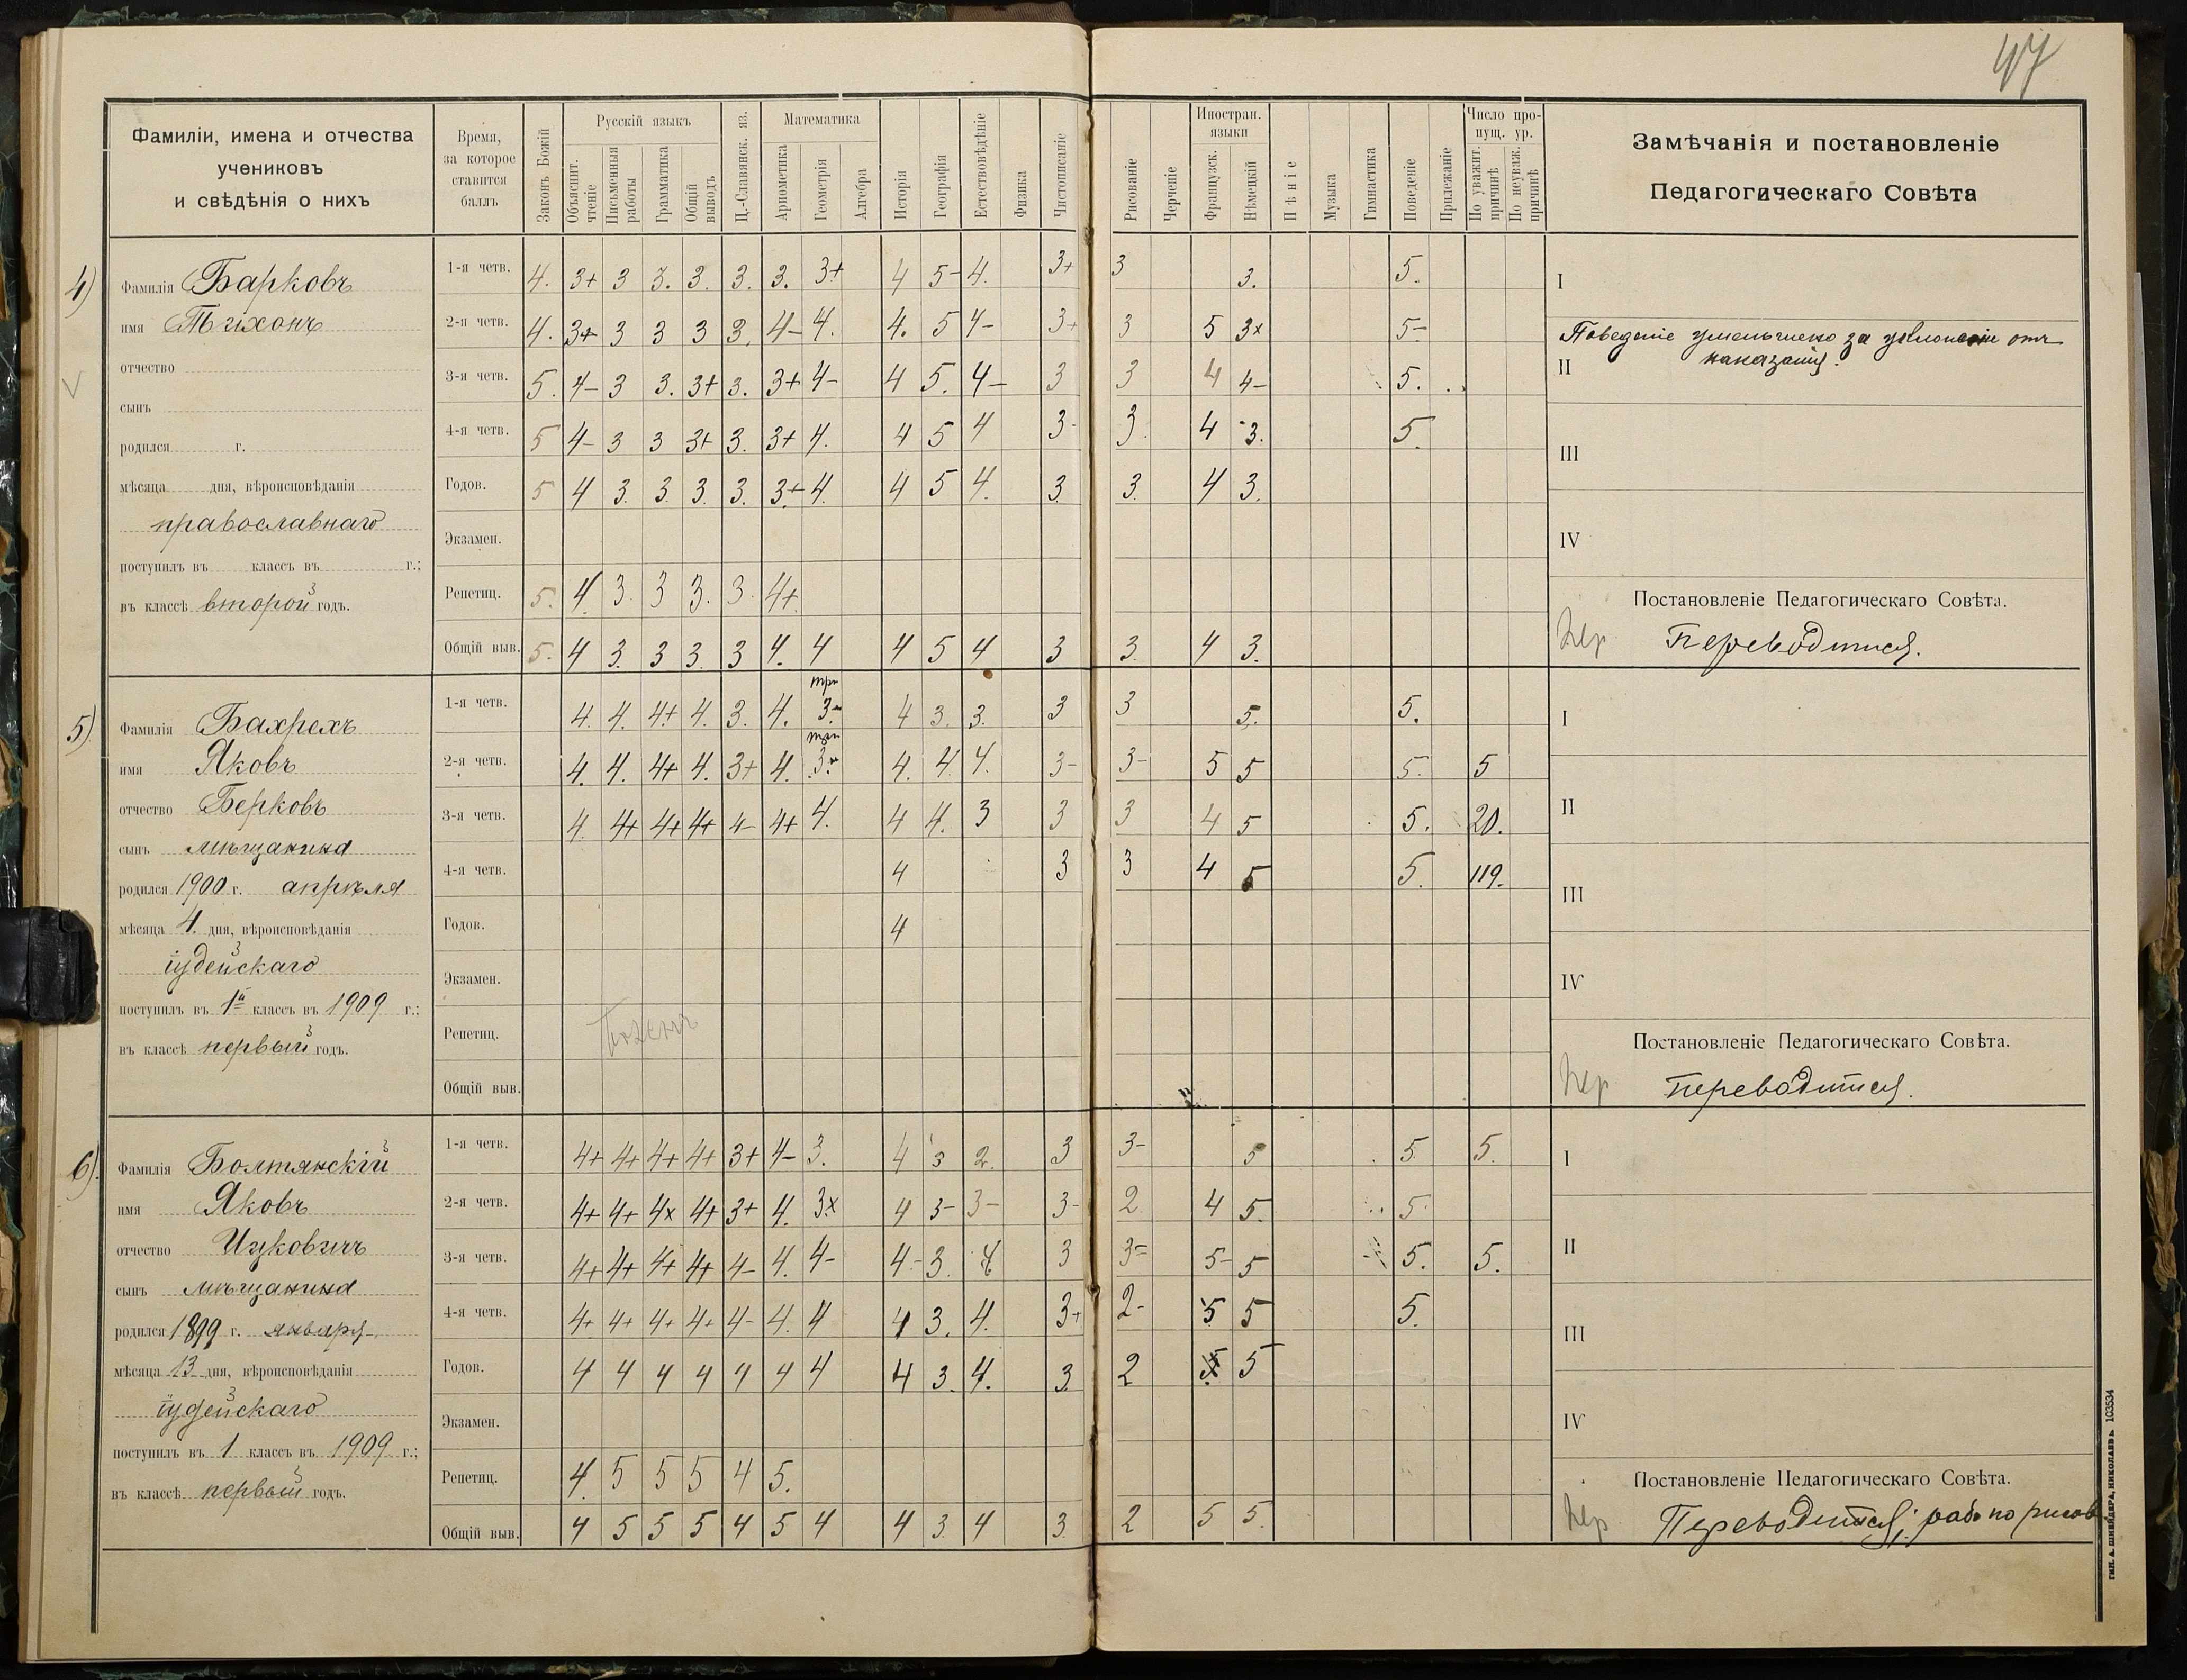 47
Фамиліи, имена и отчества
учениковъ
и свѣдѣнія о нихъ
Время,
за которое
ставится
баллъ
Законъ Божій
Русскій языкъ
Объяснит.
чтеніе
Письменныя
работы
Грамматика
Общій
выводъ
Ц.-Славянск. яз.
Математика
Ариѳметика
Геометрія
Алгебра
Исторія
Географія
Естествовѣдѣніе
Физика
Чистописаніе
Рисованіе
Черченіе
Иностран.
языки
Французск.
Нѣмецкій
Пѣніе
Музыка
Гимнастика
Поведеніе
Прилежаніе
Число про-
пущ. ур.
По уважит.
причинѣ
По неуваж.
причинѣ
Замѣчанія и постановленіе
Педагогическаго Совѣта
4)
Фамилія Барковъ
имя Тихонъ
отчество
сынъ
родился г.
мѣсяца дня, вѣроисповѣданія
православнаго
поступилъ въ классъ въ г.;
въ классѣ второй годъ.
1-я четв. 4. 3+ 3 3. 3. 3. 3. 3+ 4 5- 4. 3+ 3 3. 5.
2-я четв. 4. 3+ 3 3 3 3. 4- 4. 4. 5 4- 3+ 3 5 3× 5-
3-я четв. 5. 4- 3 3. 3+ 3. 3+ 4- 4 5. 4- 3 3 4 4- 5.
4-я четв. 5 4- 3 3 3+ 3. 3+ 4. 4 5 4 3- 3. 4 3. 5.
Годов. 5 4 3. 3. 3. 3. 3+ 4. 4 5 4. 3. 3. 4 3.
Экзамен.
Репетиц. 5. 4. 3. 3 3. 3. 4+
Общій выв. 5. 4 3. 3 3. 3 4. 4 4 5 4 3 3. 4 3.
I
Поведеніе уменьшено за уклоненіе отъ
наказанія.
II
III
IV
Постановленіе Педагогическаго Совѣта.
Пер Переводится.
5)
Фамилія Бахрехъ
имя Яковъ
отчество Берковъ
сынъ мѣщанина
родился 1900 г. апрѣля
мѣсяца 4. дня, вѣроисповѣданія
іудейскаго
поступилъ въ 1й классъ въ 1909 г.;
въ классѣ первый годъ.
1-я четв. 4. 4. 4+ 4. 3. 4. три 3- 4 3. 3. 3 3 5. 5.
2-я четв. 4. 4. 4+ 4. 3+ 4. три 3+ 4. 4. 4. 3- 3- 5 5 5. 5
3-я четв. 4. 4+ 4+ 4+ 4- 4+ 4. 4 4. 3 3 3 4 5 5. 20.
4-я четв. 4 3 3 4 5 5. 119.
Годов. 4
Экзамен.
Репетиц.
Общій выв.
I
II
III
IV
Постановленіе Педагогическаго Совѣта.
Пер Переводится.
6)
Фамилія Болтянскій
имя Яковъ
отчество Ицковичъ
сынъ мѣщанина
родился 1899 г. января
мѣсяца 13 дня, вѣроисповѣданія
іудейскаго
поступилъ въ 1 классъ въ 1909 г.;
въ классѣ первый годъ.
1-я четв. 4+ 4+ 4+ 4+ 3+ 4- 3. 4 3 2. 3 3- 5 5. 5.
2-я четв. 4+ 4+ 4× 4+ 3+ 4. 3× 4 3- 3- 3- 2. 4 5. 5.
3-я четв. 4+ 4+ 4+ 4+ 4- 4. 4- 4- 3. 4 3 3= 5- 5 5. 5.
4-я четв. 4+ 4+ 4+ 4+ 4- 4. 4 4 3. 4. 3+ 2- 5 5 5.
Годов. 4 4 4 4 4 4 4 4 3. 4. 3. 2 5 5
Экзамен.
Репетиц. 4. 5 5 5 4 5.
Общій выв. 4 5 5 5 4 5 4 4 3. 4 3. 2 5 5.
I
II
III
IV
Постановленіе Педагогическаго Совѣта.
Пер Переводится; раб. по рисов
тип. А. Шнейдера, Николаевъ. 103534